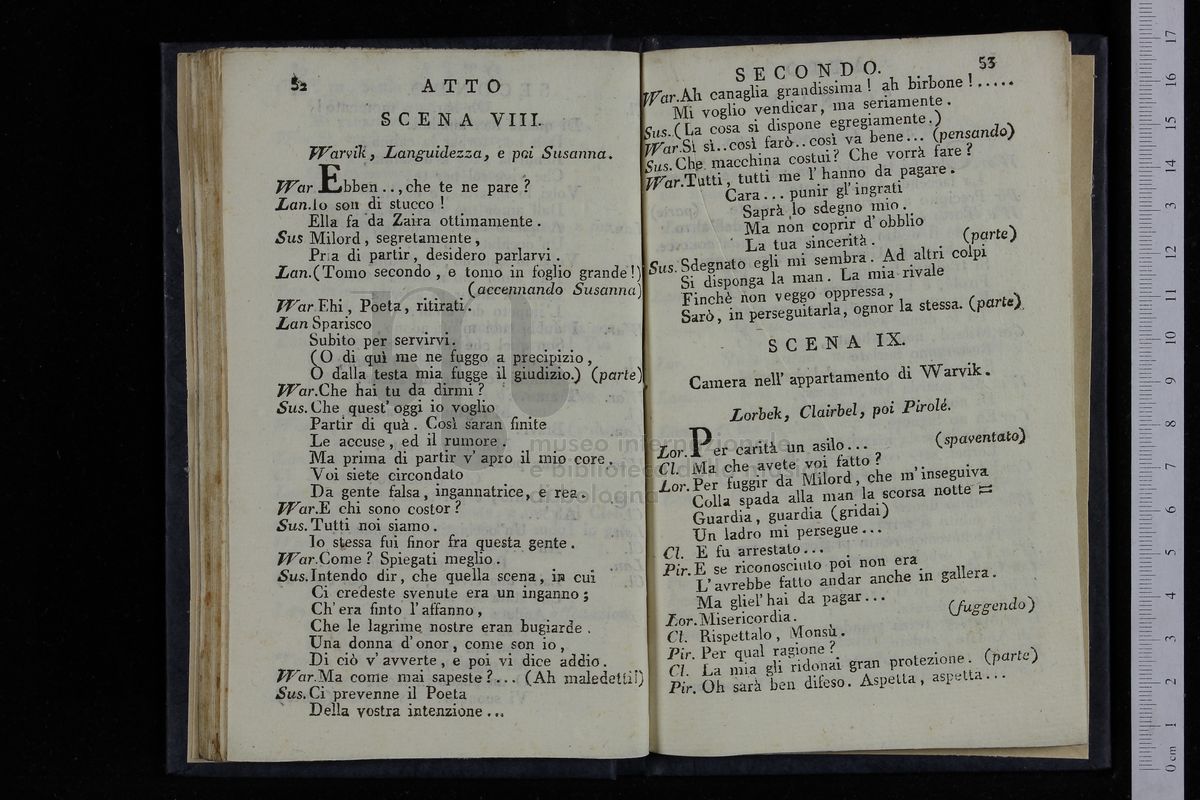 52
ATTO
SCENA VIII.
Warvik, Languidezza, e poi Susanna.
War Ebben .., che te ne pare?
Lan.Io son di stucco!
Ella fa da Zaira ottimamente.
Sus Milord, segretamente,
Pria di partir, desidero parlarvi.
Lan.(Tomo secondo, e tomo in foglio grande!)
(accennando Susanna)
War Ehi, Poeta, ritirati.
Lan Sparisco
Subito per servirvi.
(O di quì me ne fuggo a precipizio,
O dalla testa mia fugge il giudizio.) (parte)
War.Che hai tu da dirmi?
Sus.Che quest' oggi io voglio
Partir di quà. Così saran finite
Le accuse, ed il rumore.
Ma prima di partir v' apro il mio core.
Voi siete circondato
Da gente falsa, ingannatrice, e rea.
War.E chi sono costor?
Sus.Tutti noi siamo.
Io stessa fui finor fra questa gente.
War.Come? Spiegati meglio.
Sus.Intendo dir, che quella scena, in cui
Ci credeste svenute era un inganno;
Ch' era finto l' affanno,
Che le lagrime nostre eran bugiarde.
Una donna d' onor, come son io,
Di ciò v' avverte, e poi vi dice addio.
War.Ma come mai sapeste?... (Ah maledetti!)
Sus.Ci prevenne il Poeta
Della vostra intenzione...
SECONDO.
53
War.Ah canaglia grandissima! ah birbone!.....
Mi voglio vendicar, ma seriamente.
Sus.(La cosa si dispone egregiamente.)
War.Sì sì..così farò..così va bene... (pensando)
Sus.Che macchina costui? Che vorrà fare?
War.Tutti, tutti me l' hanno da pagare.
Cara... punir gl' ingrati
Saprà lo sdegno mio.
Ma non coprir d' obblio
La tua sincerità. (parte)
Sus.Sdegnato egli mi sembra. Ad altri colpi
Si disponga la man. La mia rivale
Finchè non veggo oppressa,
Sarò, in perseguitarla, ognor la stessa. (parte)
SCENA IX.
Camera nell' appartamento di Warvik.
Lorbek, Clairbel, poi Pirolé.
Lor.Per carità un asilo... (spaventato)
Cl. Ma che avete voi fatto?
Lor.Per fuggir da Milord, che m' inseguiva
Colla spada alla man la scorsa notte =
Guardia, guardia (gridai)
Un ladro mi persegue...
Cl. E fu arrestato...
Pir.E se riconosciuto poi non era
L' avrebbe fatto andar anche in gallera.
Ma gliel' hai da pagar...
Lor.Misericordia. (fuggendo)
Cl. Rispettalo, Monsù.
Pir. Per qual ragione?
Cl. La mia gli ridonai gran protezione. (parte)
Pir. Oh sarà ben difeso. Aspetta, aspetta...
museo internazionale
e biblioteca della musica
di bologna
0 cm 1 2 3 4 5 6 7 8 9 10 11 12 13 14 15 16 17